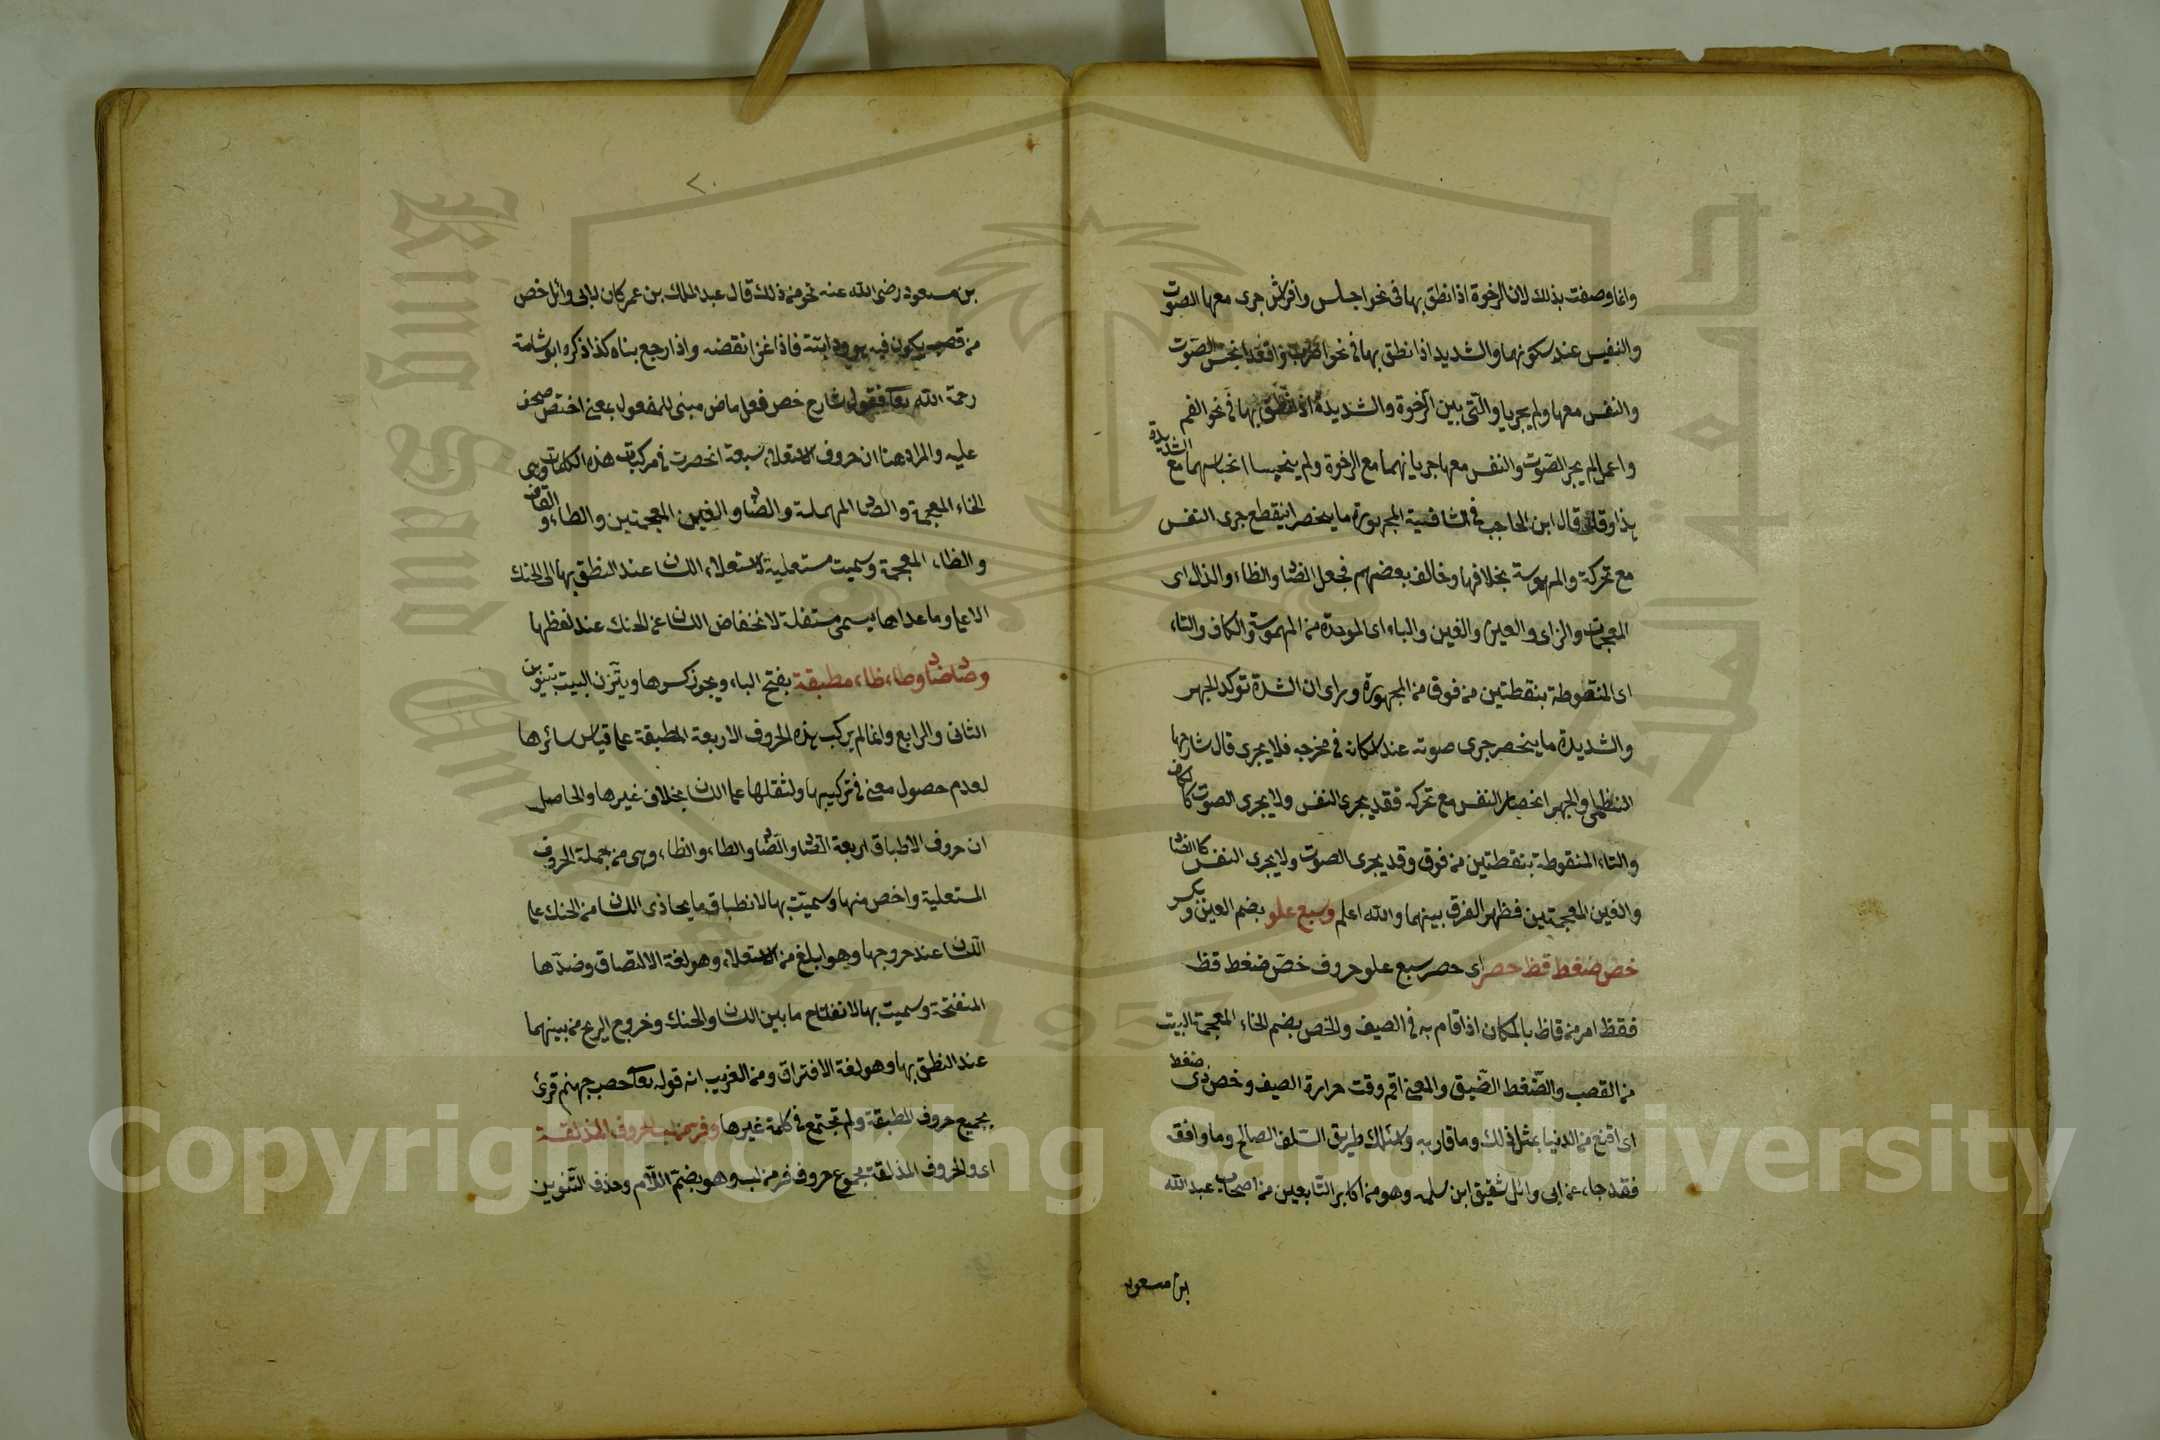 وانما وصفت بذلك لان الرخوة اذا نطق بها فى نحو اجلس وافرش جرى معها الصوت
والنفس عند سكونهما والشديد اذا نطق بها فى نحو اضرب واقعد انحبس الصوت
والنفس معها ولم يجريا والتى بين الرخوة والشديدة اذا نطق بها فى نحو انعم
واعمل لم يجر الصوت والنفس معها جريانهما مع الرخوة ولم ينحبسا انحباسهما مع الشديدة
هذا وقد قال ابن الحاجب فى الشافية المجهورة ما ينحصر اينقطع جرى النفس
مع تحركه والمهموسة بخلافها وخالف بعضهم فجعل الضاد والظاء والذال اى
المعجمات والزاى والعين والغين والباء اى الموحدة من المهموسة والكاف والتاء
اى المنقوطة بنقطتين من فوق من المجهورة وراى ان الشدة توكد الجهر
والشديدة ما ينحصر جرى صوته عند اسكانه فى مخرجه فلا يجرى قال شارحها
النظامى والجهر انحصار النفس مع تحركه فقد يجرى النفس ولا يجرى الصوت كالكاف
والتاء المنقوطة بنقطتين من فوق وقد يجرى الصوت ولا يجرى النفس كالضاد
والغين المعجمتين فظهر الفرق بينهما والله اعلم وسبع علو بضم العين ويكسر
خص ضغط قظ حصر اى حصر سبع علو حروف خص ضغط قظ
فقظ امر من قاظ بالمكان اذا قام به فى الصيف والخص بضم الخاء المعجمة البيت
من القصب والضغط الضيق والمعنى اقم وقت حرارة الصيف وخص ذى ضغط
اى اقنع من الدنيا بمثل ذلك وما قاربه واسلك طريق السلف الصالح وما وافق
فقد جاء عن ابى وائل شقيق ابن سلمه وهو من اكابر التابعين من اصحاب عبد الله
ابن مسعود
٢٠
بن مسعود رضى الله عنه نحو من ذلك قال عبد الملك بن عمير كان لابى وائل خص
من قصب يكون فيه هو ودابته فاذا غزا نقضه واذا رجع بناه كذا ذكره ابو شامة
رحمة الله تعا فقول شارح خص فعل ماض مبنى للمفعول بمعنى اختص
عليه والمراد هنا ان حروف الاستعلاء سبعة انحصرت فى مركبات هذه الكلمات وهى
الخاء المعجمة والصاد المهملة والضاد والغين المعجمتين والطاء والقاف
والظاء المعجمة وسميت مستعلية لاستعلاء اللسان عند النطق بها الى الحنك
الاعلى وما عداها يسمى مستفلة لانخفاض اللسان عن الحنك عند لفظها
وصاد ضاد وطاء ظاء مطبقة بفتح الباء ويجوز كسرها ويتزن البيت بتنوين
الثانى والرابع وانما لم يركب هذه الحروف الاربعة المطبقة على قياس سائرها
لعدم حصول معنى فى تركيبها ولثقلها على اللسان بخلاف غيرها والحاصل
ان حروف الاطباق اربعة الصاد والضاد والطاء والظاء وهى من جملة الحروف
المستعلية واخص منها وسميت بها لانطباق ما يحاذى اللسان من الحنك على
اللسان عند خروجها وهو ابلغ من الاستعلاء وهو لغة الالتصاق وضدها
المنفتحة وسميت بها لانفتاح ما بين اللسان والحنك وخروج الريح من بينهما
عند النطق بها وهو لغة الافتراق ومن الغريب انه قوله تعا حصب جهنم قرئ
بجميع حروف المطبقة ولم تجتمع فى كلمة غيرها وفر من لب الحروف المذلقة
اى والحروف المذلقة مجموع حروف فر من لب وهو بضم اللام وحذف التنوين